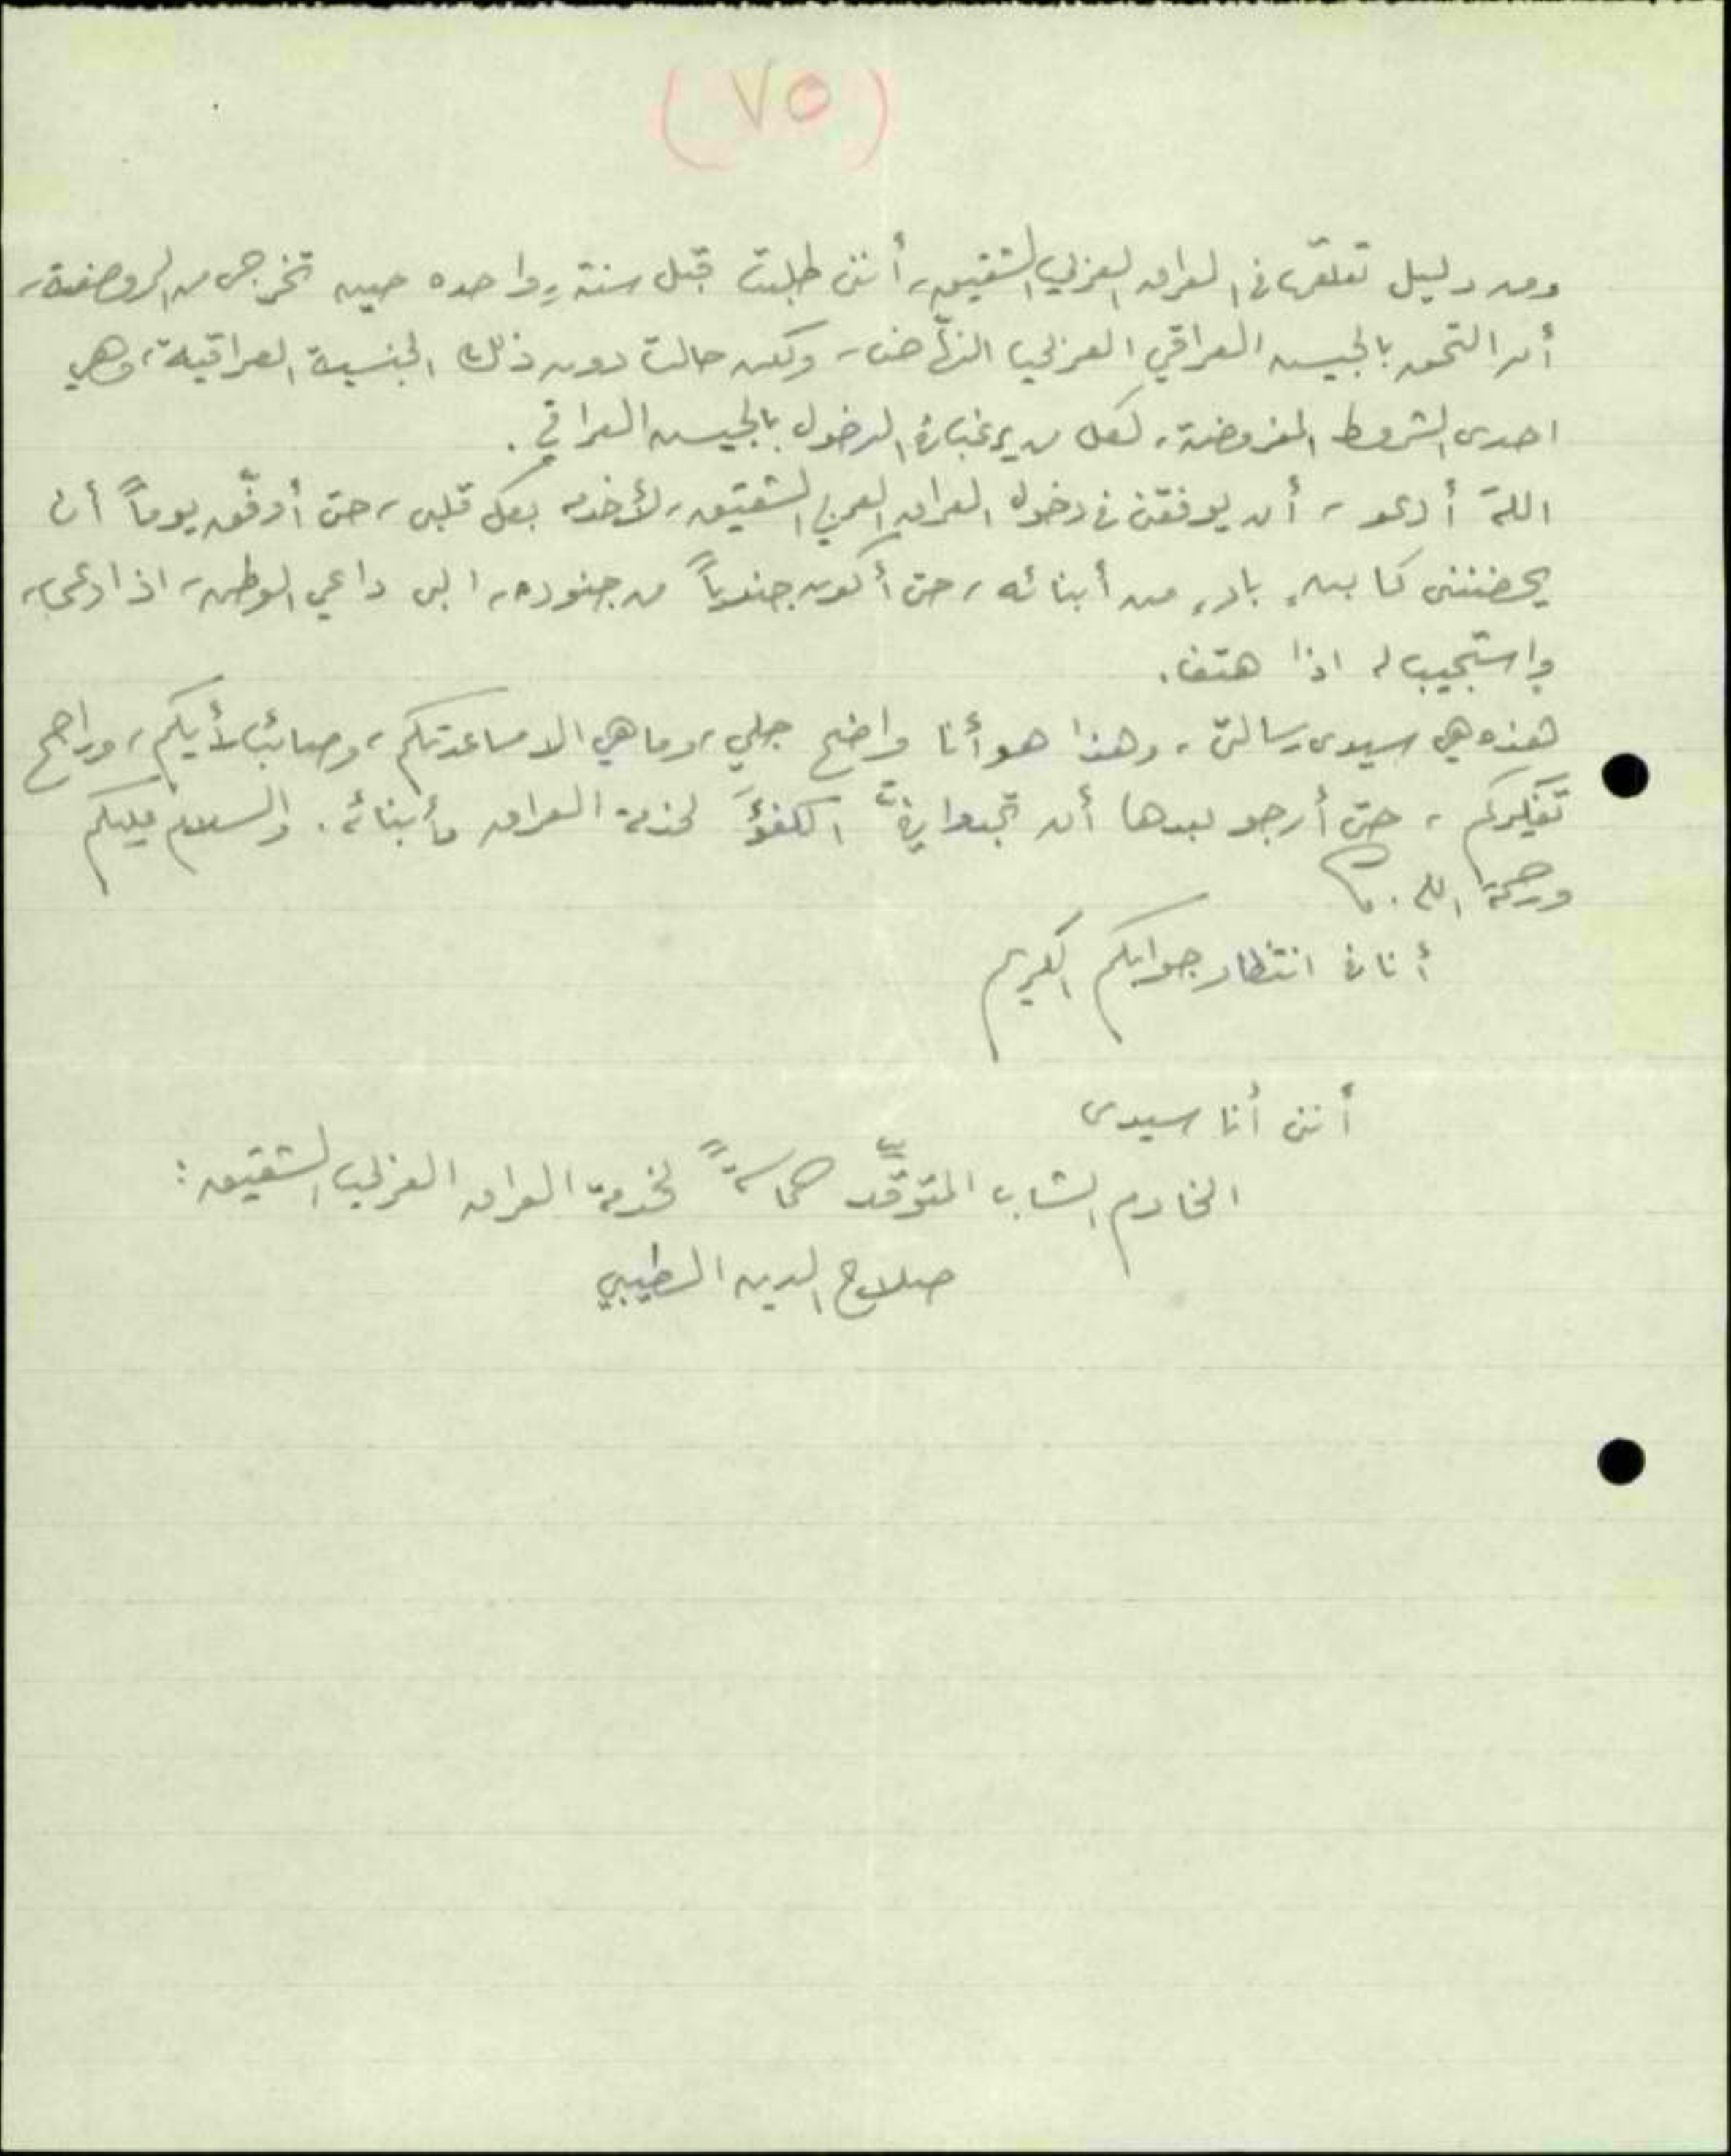 (٧٥)
ومن دليل تعلقى في العراق العربي الشقيق، أنني طلبت قبل سنة واحده حين تخرجى من الروضة،
أن التحق بالجيش العراقي العربي الناهض، ولكن حالت دون ذلك الجنسية العراقية، وهي
احدى الشروط المفروضة، لكل من يرغب في الدخول بالجيش العراقي.
اللهَ أدعو، أن يوفقني في دخول العراق العربي الشقيق، لأخدمه بكل قلبى، حتى أوفّق يوماً أن
يحضننى كابنٍ بارٍ من أبنائه، حتى أكون جندياً من جنوده، البى داعي الوطن، اذا دعى،
واستجيب له اذا هتف.
هذه هي سيدى رسالتي، وهذا هو أنا واضح جلي، وما هي الا مساعدتكم، وصائب رأيكم، وراجح
تفكيركم، حتى أرجو بعدها أن تجدوا فيّ الكفؤَ لخدمة العراق وأبنائه. والسلام عليكم
ورحمة الله.
أنا في انتظار جوابكم الكريم
أنني أنا سيدى
الخادم الشاب المتوقّد حماسةً لخدمة العراق العربي الشقيق:
صلاح الدين الطيبي